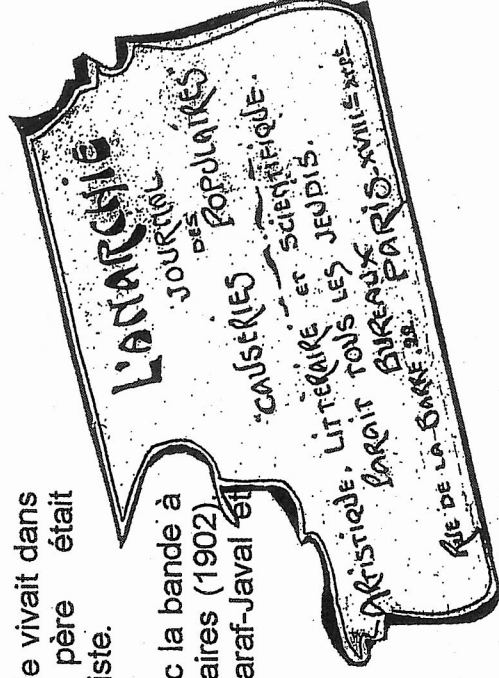 e vivait dans
père était
iste.
c la bande à
aires (1902)
araf-Javal et
L'ANARCHIE
JOURNAL
DES
"CAUSERIES POPULAIRES"
ARTISTIQUE, LITTERAIRE ET SCIENTIFIQUE.
PARAIT TOUS LES JEUDIS.
BUREAUX
RUE DE LA BARRE, 22 PARIS-XVIII